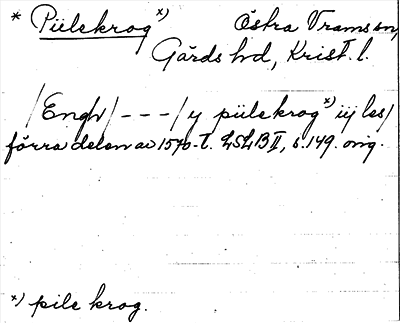 * Piilekrog x) Östra Vrams sn,
Gärds hd, Krist. l.
/Engh/ - - - / y piilekrog x) iij les/
förra delen av 1570-t. LSLB II, s. 149. orig.
x) pile krog.